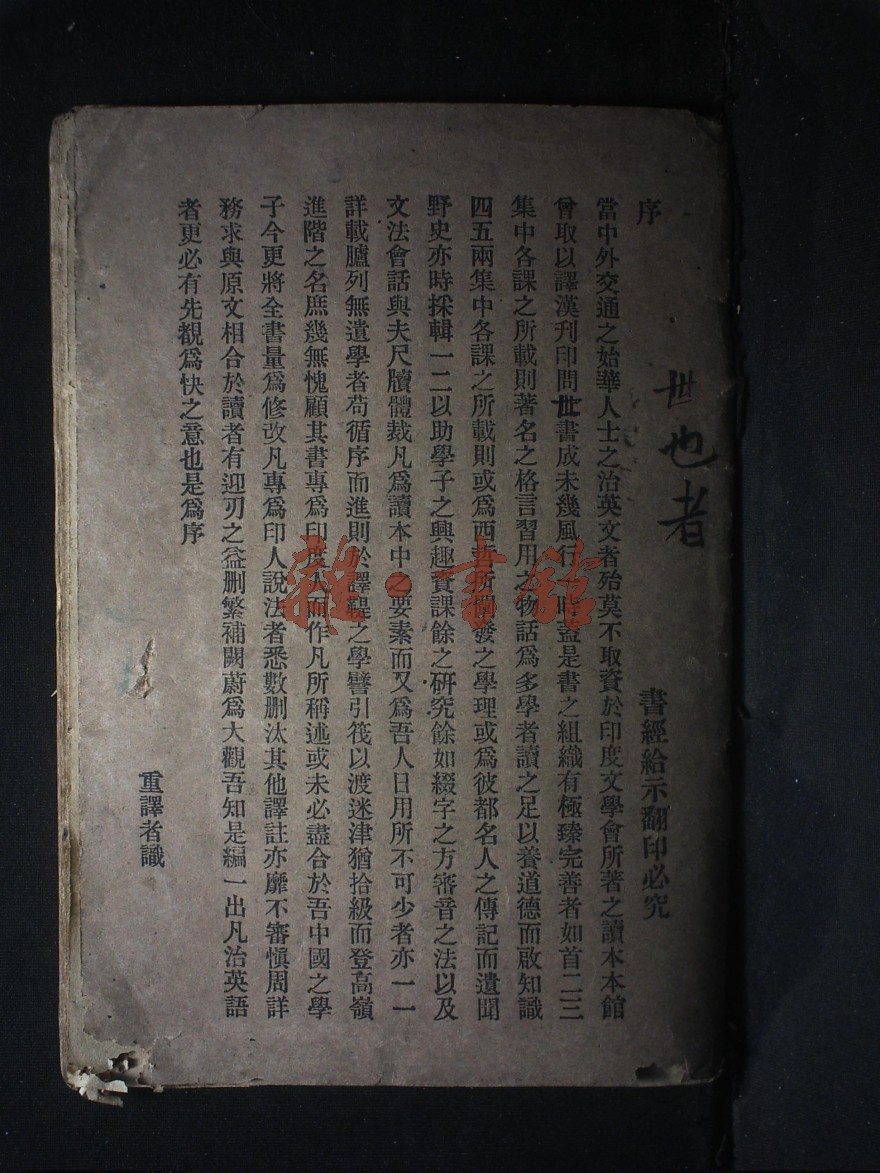 書經給示翻印必究
世也者
序
當中外交通之始華人士之治英文者殆莫不取資於印度文學會所著之讀本本館
曾取以譯漢刊印問世書成未幾風行一時蓋是書之組織有極臻完善者如首二三
集中各課之所載則著名之格言習用之物話爲多學者讀之足以養道德而啟知識
四五兩集中各課之所載則或爲西哲所闡發之學理或爲彼都名人之傳記而遺聞
野史亦時採輯一二以助學子之興趣資課餘之研究餘如綴字之方審音之法以及
文法會話與夫尺牘體裁凡爲讀本中之要素而又爲吾人日用所不可少者亦一一
詳載臚列無遺學者苟循序而進則於譯鞮之學譬引筏以渡迷津猶拾級而登高嶺
進階之名庶幾無愧顧其書專爲印度人而作凡所稱述或未必盡合於吾中國之學
子今更將全書量爲修改凡專爲印人說法者悉數删汰其他譯註亦靡不審愼周詳
務求與原文相合於讀者有迎刃之益删繁補闕蔚爲大觀吾知是編一出凡治英語
者更必有先覩爲快之意也是爲序
重譯者識
雜·書館